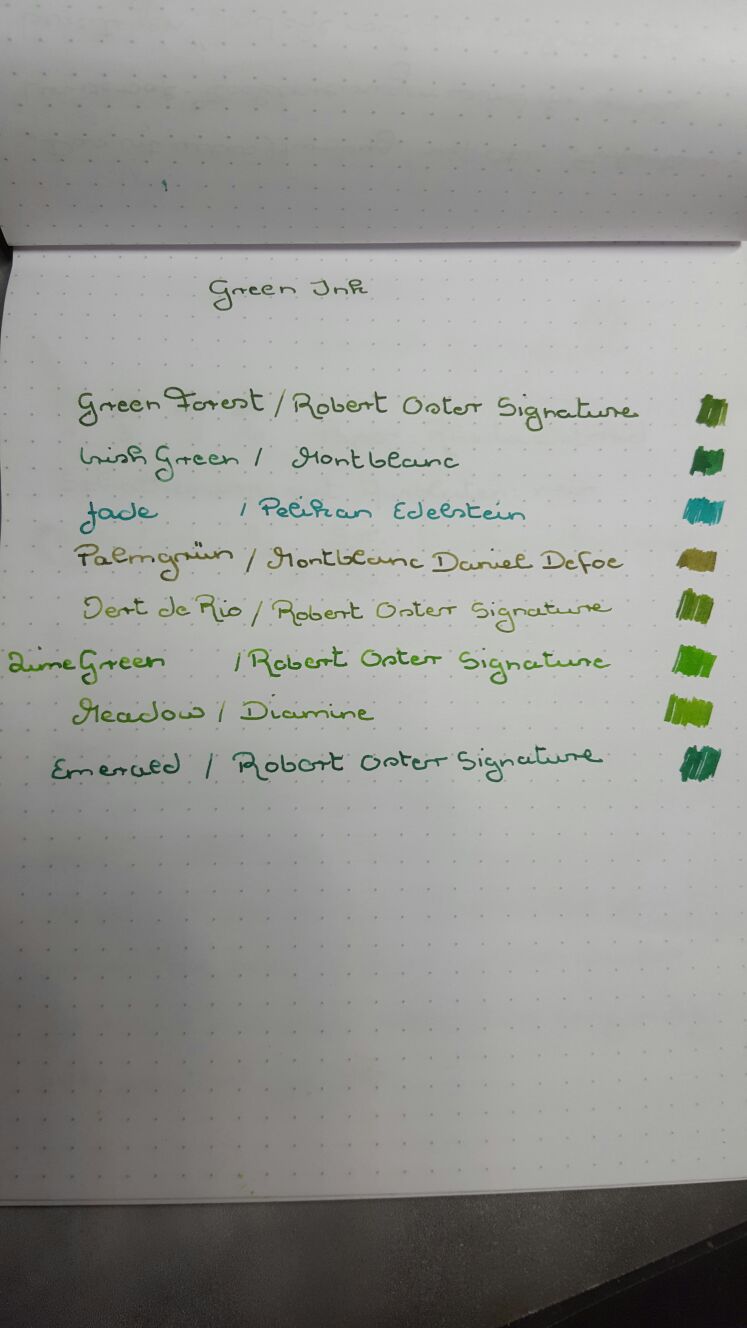 Green Ink
Green Forest / Robert Oster Signature
Irish Green / Montblanc
Jade / Pelikan Edelstein
Palmgrün / Montblanc Daniel Defoe
Vert de Rio / Robert Oster Signature
Lime Green / Robert Oster Signature
Meadow / Diamine
Emerald / Robert Oster Signature